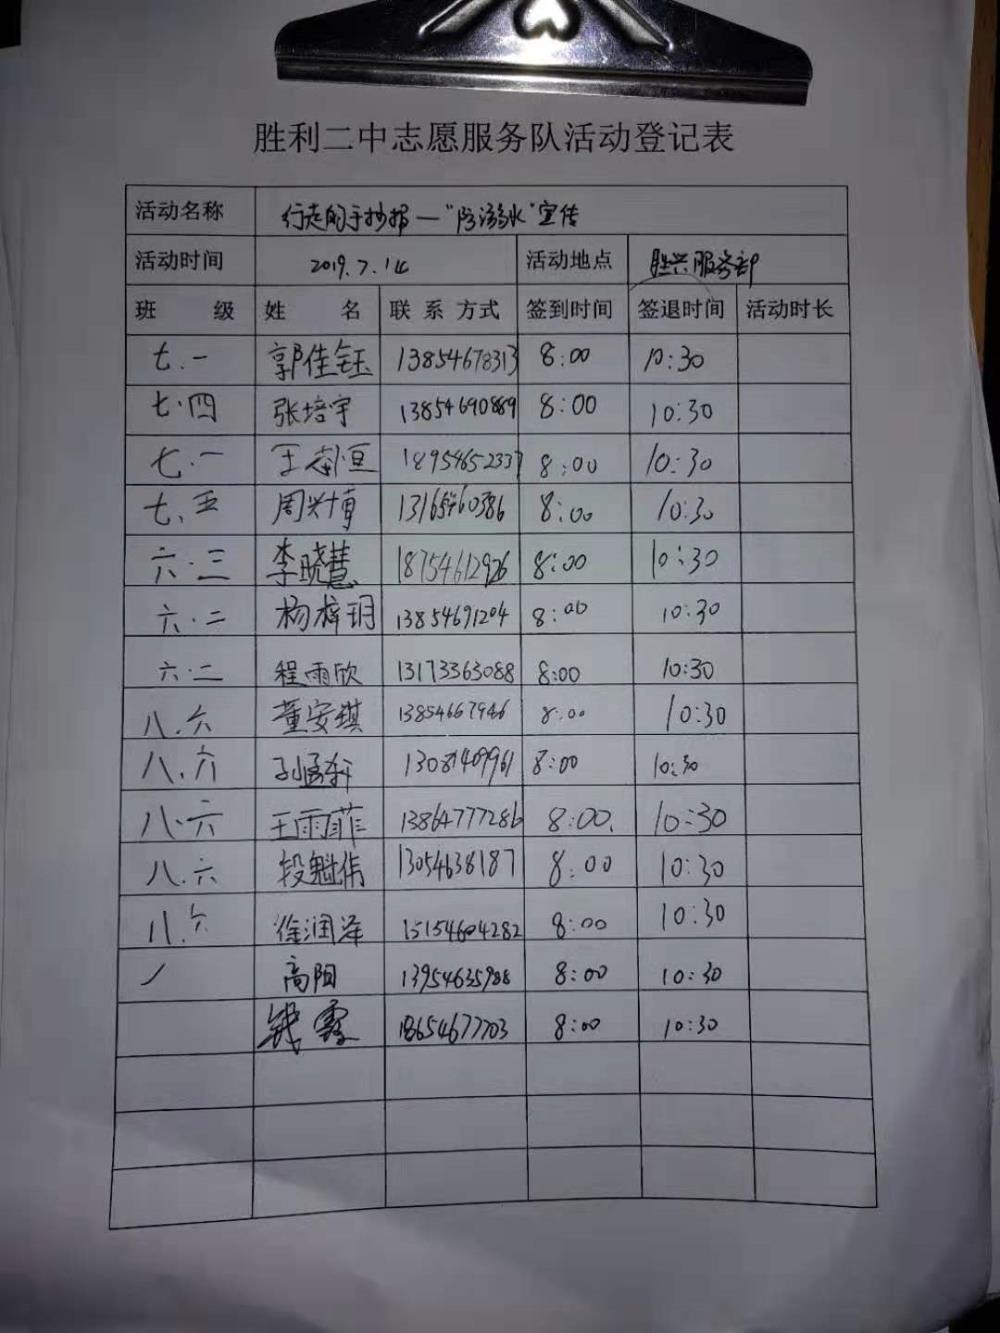 胜利二中志愿服务队活动登记表
活动名称 行走的手抄报—“防溺水”宣传
活动时间 2019.7.14 活动地点 胜兴服务部
班 级 姓 名 联 系 方式 签到时间 签退时间 活动时长
七.一 郭佳钰 13854678313 8:00 10:30
七.四 张培宇 13854690889 8:00 10:30
七.一 王 恒 18954652337 8:00 10:30
七.五 周兴博 8:00 10:30
六.三 李晓慧 18754612926 8:00 10:30
六.二 杨梓玥 13854691204 8:00 10:30
六.二 程雨欣 13173363088 8:00 10:30
八.六 董安琪 13854667946 8:00 10:30
八.六 孙孟轩 13081409961 8:00 10:30
八.六 王雨菲 13864777286 8:00. 10:30
八.六 段魁伟 13054638187 8:00 10:30
八.六 徐润泽 15154604282 8:00 10:30
高阳 13954635988 8:00 10:30
钱霞 18654677703 8:00 10:30